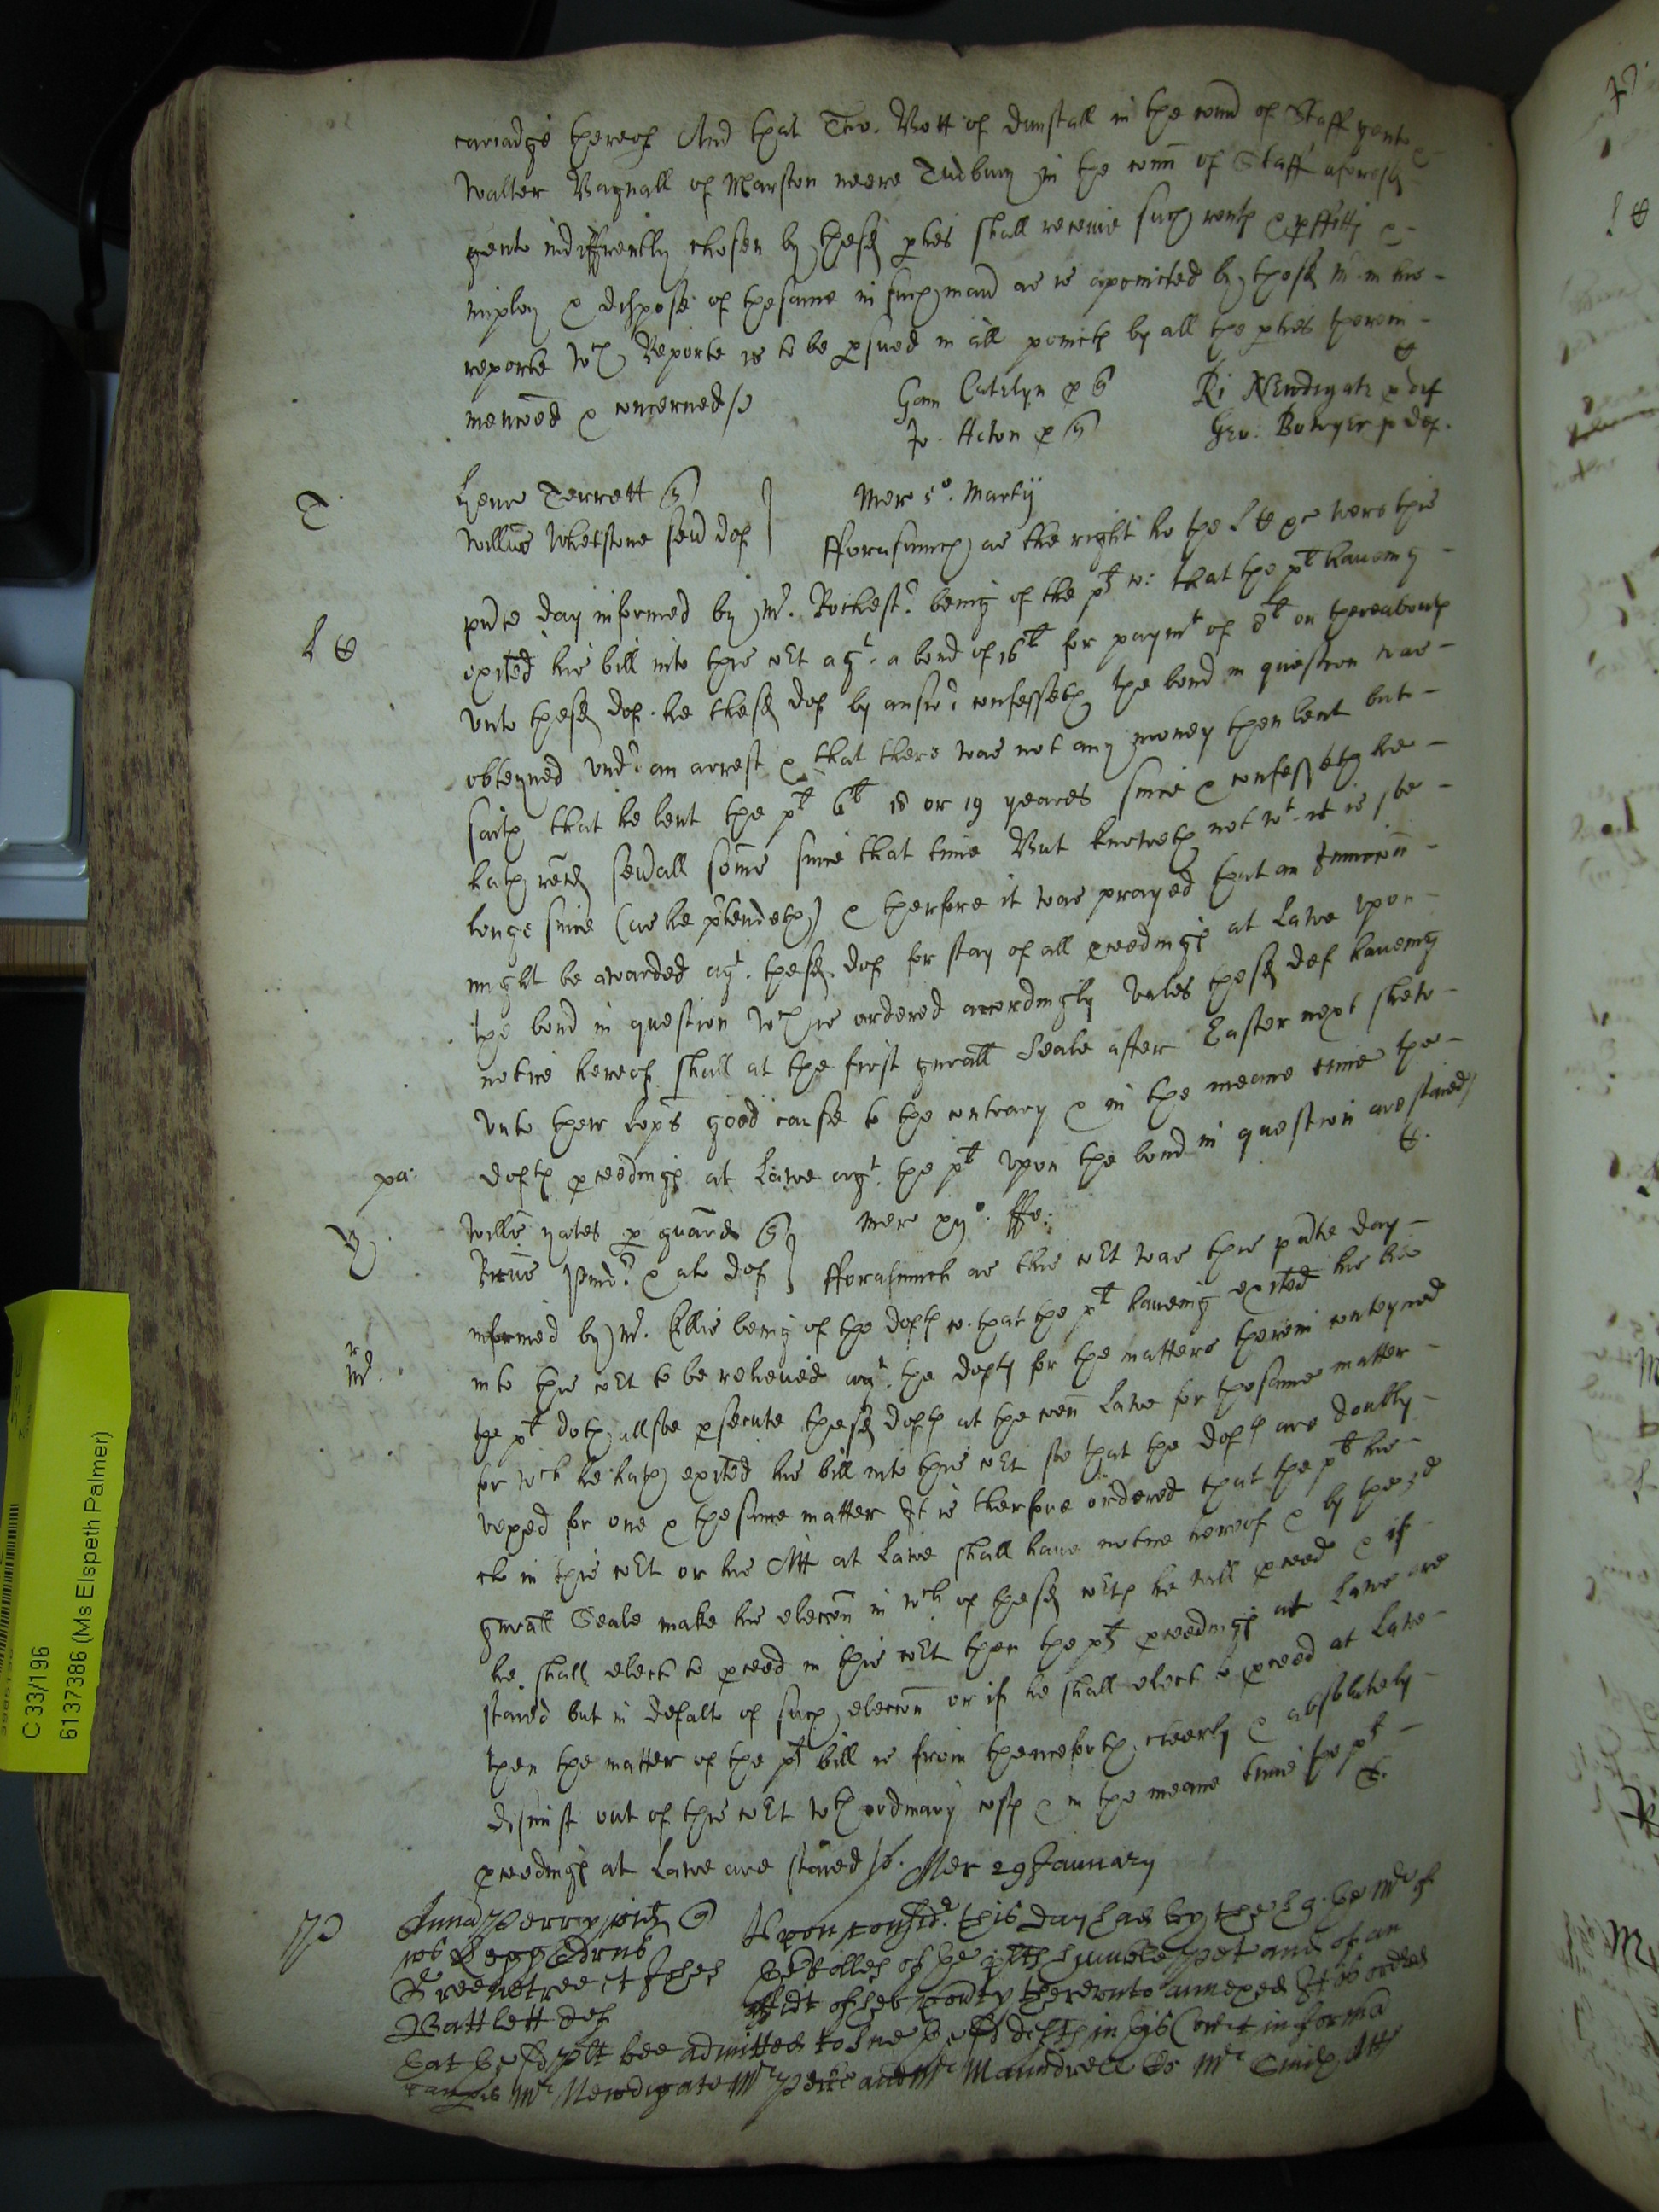 cariadge thereof And that Tho. Nott of Dunstall in the com of Staff gent &
Walter Bagnall of Marston neere Tudbury in the com of Staff aforesd
gent indifferently chosen by thesd pties shall receive such rents & pffitts &
imploy & dispose of the same in such mann as is apointed by thesd Mr in his
reporte wch Reporte is to be psued in all points by all the pties therein
menconed & concerned /
Jo. Acton p q
Ri Newdigate p def
Geo. Bowyer p def.
T
Henr Terrett q
Willus Whetstone sen def
Mer 5o. Martij
Fforasmuch as the right ho the L C &c were this
L C
pnte day informed by Mr. Rochestr. being of the pts co: that the pt haveing
exited his bill into this cort agt. a bond of 16l for paymt of 8l or thereabouts
unto thesd def. he thesd def by answr confesseth the bond in question was
obteyned undr an arrest & that there was not any money then lent but
saith that he lent the pt 6l 18 or 19 yeares since & confesseth he
hath recd sevall somes since that time But knoweth not wt. it is soe
longe since (as he ptendeth) & therfore it was prayed that an Iniuncon
might be awarded agt. thesd def for stay of all pceedings at Lawe upon
the bond in question wch is ordered accordingly Unles thesd def haveing
notice hereof shall at the first gnrall Seale after Easter next shew
unto their Lops good cause to the contrary & in the meane time the
pa:
defts pceedings at Lawe agt. the pt upon the bond in question are staied /
Y.
Willm yates p guard q
Mer xijo. ffe:
& als def
Fforasmuch as this cort was this pnte day
informed by Mr. Ellis being of the defts co. that the pt haveing exited his bill
Mr.
into this cort to be releived agt. the defts for the matters therein conteyned
the pt doth allsoe psecute thesd defts at the com Lawe for the same matter
for wch he hath exited his bill into this cort soe that the defts are doubly
vexed for one & the same matter It is therfore ordered that the pt his
cl in this cort or his Att at Lawe shall have notice hereof & by the 2d
gnrall Seale make his eleccon in wch of thesd corts he will pceed & if
he shall elect to pceed in this cort then the pts pceedings at Lawe are
staied but in default of such eleccon or if he shall elect to pceed at Lawe
then the matter of the pts bill is from thenceforth cleerly & absolutely
dismist out of this cort wth ordinary costs & in the meane time the pts
pceedings at Lawe are staied /
Mer 29 January
P
Anna Perry q
Upon considr. this day had by the
Greenetree et
Rolles of the plts humble pet and of an
Bartlett def
affidt of her povty thereunto annexed It is ordred
that the sd plt bee admitted to sue the sd defts in this Court in forma
paupis Mr Newdigate Mr and Mr Maundrell Mr Att
C 33/196
6137386 (Ms Elspeth Palmer)